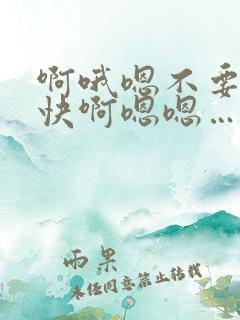 啊哦嗯不要
快啊嗯嗯…
雨果
未经同意禁止转载